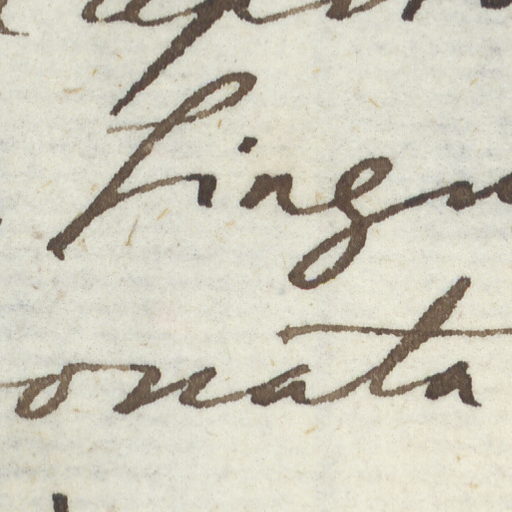 Lingu
onata